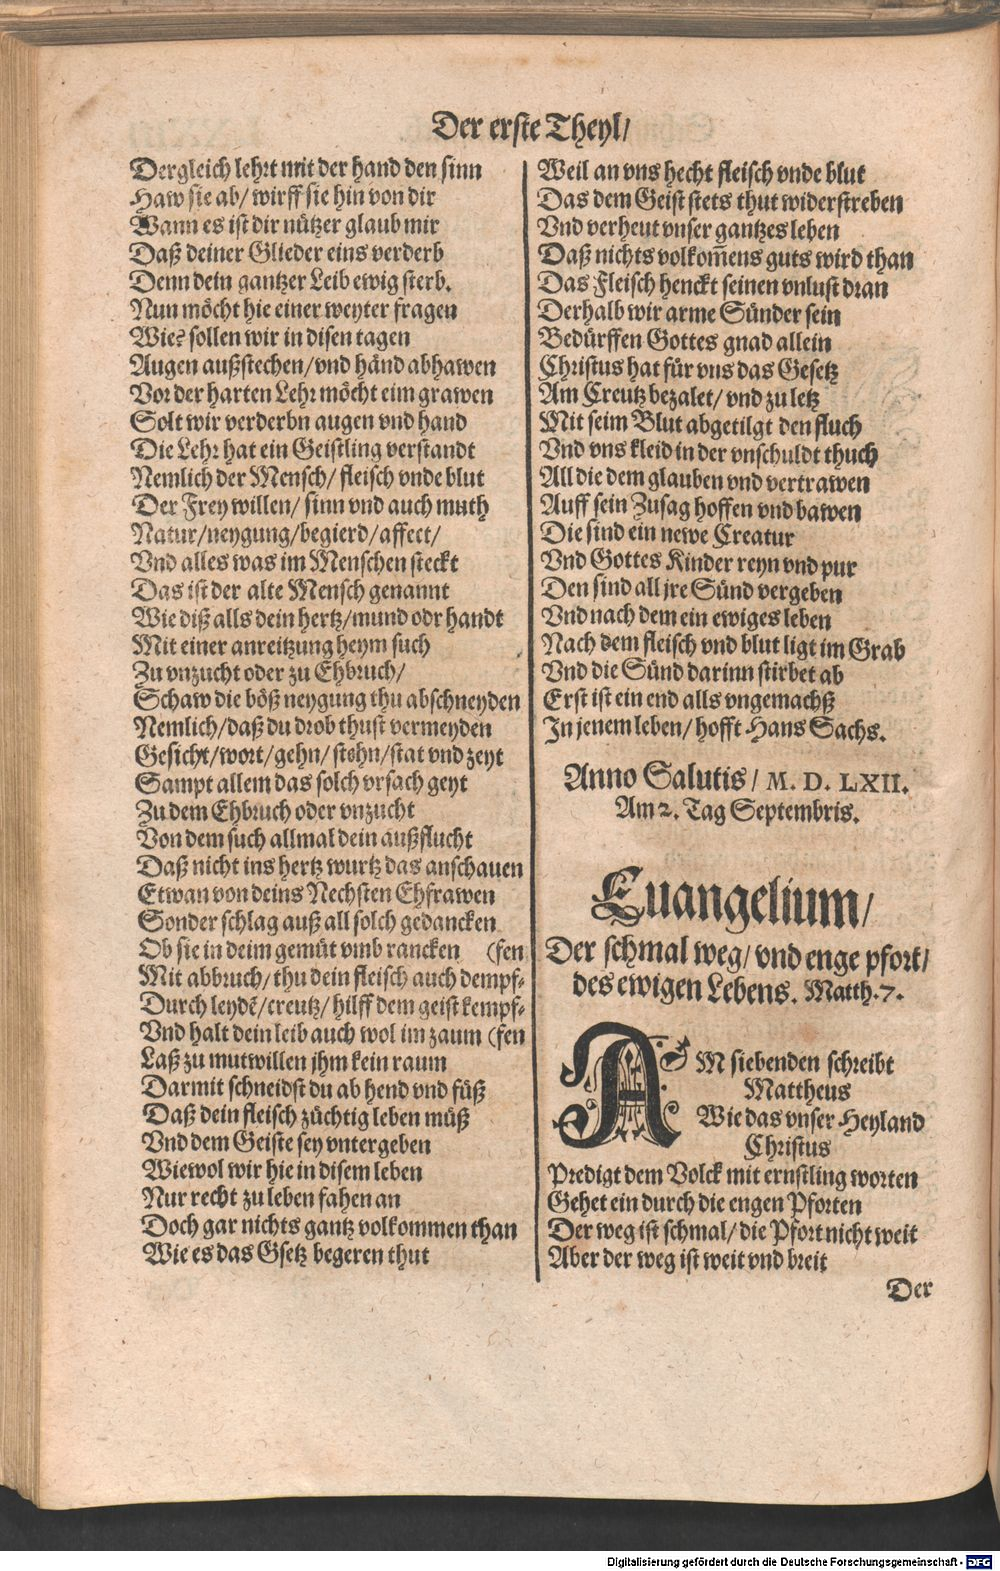 Der erste Theyl/
Dergleich lehrt mit der hand den sinn
Haw sie ab/ wirff sie hin von dir
Wann es ist dir nützer glaub mir
Daß deiner Glieder eins verderb
Denn dein gantzer Leib ewig sterb.
Nun möcht hie einer weyter fragen
Wie? sollen wir in disen tagen
Augen außstechen/ vnd händ abhawen
Vor der harten Lehr möcht eim grawen
Solt wir verderbn augen vnd hand
Die Lehr hat ein Geistling verstandt
Nemlich der Mensch/ fleisch vnde blut
Der Frey willen/ sinn vnd auch muth
Natur/neygung/begierd/affect/
Vnd alles was im Menschen steckt
Das ist der alte Mensch genannt
Wie diß alls dein hertz/mund odr handt
Mit einer anreitzung heym such
Zu vnzucht oder zu Ehbruch/
Schaw die böß neygung thu abschneyden
Nemlich/daß du drob thust vermeyden
Gesicht/wort/gehn/stehn/stat vnd zeyt
Sampt allem das solch vrsach geyt
Zu dem Ehbruch oder vnzucht
Von dem such allmal dein außflucht
Daß nicht ins hertz wurtz das anschauen
Etwan von deins Nechsten Ehfrawen
Sonder schlag auß all solch gedancken
Ob sie in deim gemüt vmb rancken (fen
Mit abbruch/ thu dein fleisch auch dempf-
Durch leydẽ/creutz/ hilff dem geist kempf-
Vnd halt dein leib auch wol im zaum (fen
Laß zu mutwillen jhm kein raum
Darmit schneidst du ab hend vnd füß
Daß dein fleisch züchtig leben müß
Vnd dem Geiste sey vntergeben
Wiewol wir hie in disem leben
Nur recht zu leben fahen an
Doch gar nichts gantz volkommen than
Wie es das Gsetz begeren thut
Weil an vns hecht fleisch vnde blut
Das dem Geist stets thut widerstreben
Vnd verheut vnser gantzes leben
Daß nichts volkom̃ens guts wird than
Das Fleisch henckt seinen vnlust dran
Derhalb wir arme Sünder sein
Bedürffen Gottes gnad allein
Christus hat für vns das Gesetz
Am Creutz bezalet/ vnd zu letz
Mit seim Blut abgetilgt den fluch
Vnd vns kleid in der vnschuldt thuch
All die dem glauben vnd vertrawen
Auff sein Zusag hoffen vnd bawen
Die sind ein newe Creatur
Vnd Gottes Kinder reyn vnd pur
Den sind all jre Sünd vergeben
Vnd nach dem ein ewiges leben
Nach dem fleisch vnd blut ligt im Grab
Vnd die Sünd darinn stirbet ab
Erst ist ein end alls vngemachß
In jenem leben/ hofft Hans Sachs.
Anno Salutis/ M. D. LXII.
Am 2. Tag Septembris.
Euangelium/
Der schmal weg/ vnd enge pfort/
des ewigen Lebens. Matth. 7.
AM siebenden schreibt
Mattheus
Wie das vnser Heyland
Christus
Predigt dem Volck mit ernstling worten
Gehet ein durch die engen Pforten
Der weg ist schmal/ die Pfort nicht weit
Aber der weg ist weit vnd breit
Der
Digitalisierung gefördert durch die Deutsche Forschungsgemeinschaft - DFG